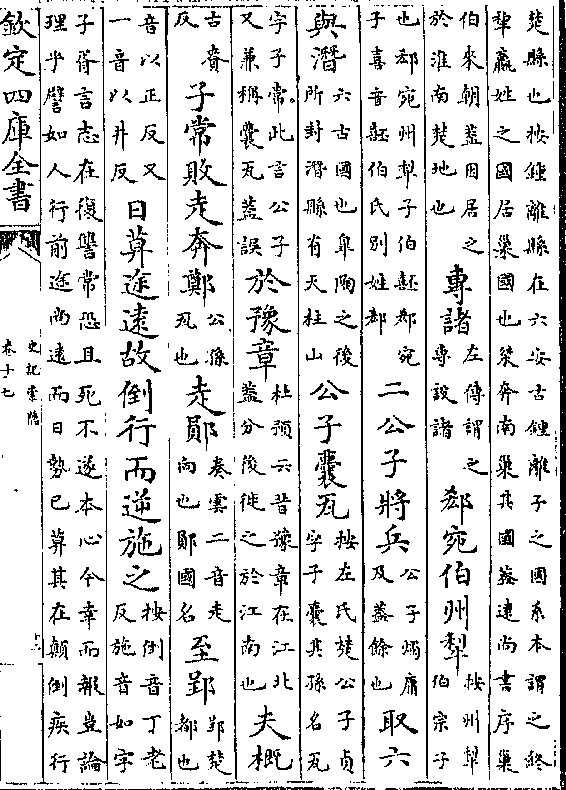 楚縣也按鍾離縣在六安古鍾離子之國系本謂之終
犂嬴姓之國居巢國也桀奔南巢其國蓋遠尚書序巢
伯來朝蓋因居之於淮南楚地也專諸左傳謂之專設諸郄宛伯州犂按州犂伯宗子
也郄宛州犂子伯嚭郄宛子喜音嚭伯氏別姓郄二公子將兵公子燭庸及蓋餘也取六
與潛六古國也臯陶之後所封潛縣有天柱山公子囊瓦按左氏楚公子貞字子囊其孫名瓦
字子常此言公子又兼稱囊瓦蓋誤於豫章杜預云昔豫章在江北蓋分後徙之於江南也夫概
古賚反子常敗走奔鄭公孫瓦也走鄖奏雲二音走向也鄖國名至郢郢楚都也
音以正反又一音以井反日莫途遠故倒行而逆施之按倒音丁老反施音如字
子胥言志在復讐常恐且死不遂本心今幸而報豈論
理乎譬如人行前途尚遠而日勢已莫其在顛倒疾行
欽定四庫全書
史記索隱
卷十七